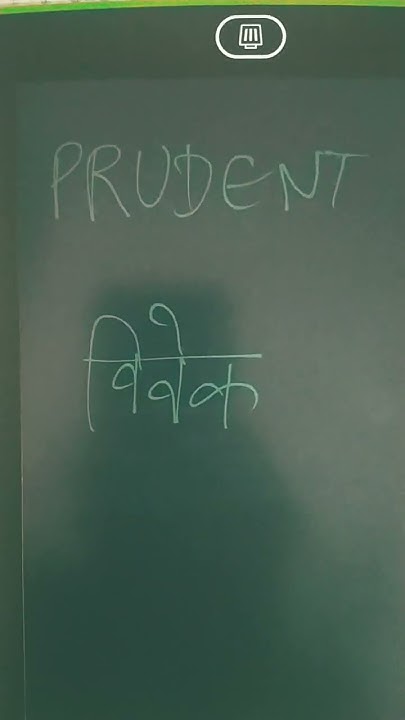 PRUDENT
विवेक